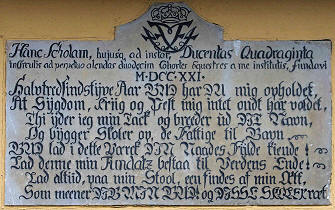 Hanc Scholam, hujusq ad instar, Ducentas Quadraginta
ad perpetuo alendas duodecim Cohortes Equestres a me institutis, fundavi
M·DCC·XXI.
Halvtredsindstjve Aar GUD har DU mig opholdet,
At Sijgdom, Krijg og Pest mig intet ondt har voldet,
Thi yder jeg min Tack og breeder ud DIT Navn,
Og bygger Skoler op, de Fattige til Gavn
GUD lad i dette Verck DIN Naades Fylde kiende!
Lad denne min Fundatz bestaa til Verdens Ende!
Lad altiid, paa min Stool, een findes af min Æt,
Som meener DIG MIN GUD, og DISSE SKOLER ret.